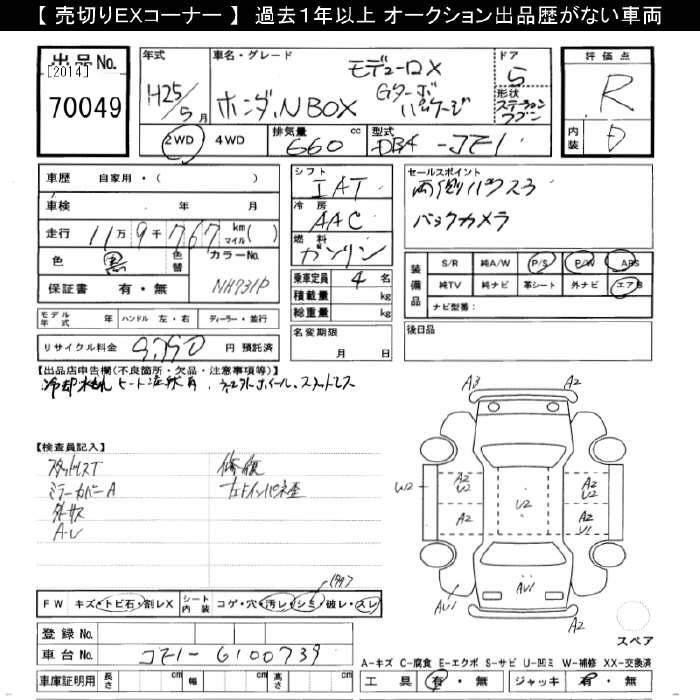 【 売切りEXコーナー 】 過去1年以上 オークション出品歴がない車両
出品No.
[2014]
70049
年式
H25/5月
車名・グレード
ホンダ、N BOX
モデューロX
Gターボ
パッケージ
ドア
5
形状
ステーション
ワゴン
評価点
R
内装
D
2WD 4WD
排気量 660 cc
型式 DBA-JF1
車歴 自家用・( )
車検 年 月
走行 11万9千767 km マイル( )
色 黒 色替
カラーNo. NH731P
保証書 有・無
モデル年式 年 ハンドル 左・右 ディーラー・並行
リサイクル料金 9,990 円 預託済
シフト
IAT
冷房
AAC
燃料
ガソリン
乗車定員 4 名
積載量 kg
総重量 kg
名変期限
月 日
セールスポイント
両側パワスラ
バックカメラ
装備品
S/R 純A/W P/S P/W ABS
純TV 純ナビ 革シート 外ナビ エアB
ナビ型番:
後日品
【出品店申告欄(不良箇所・欠品・注意事項等)】
【検査員記入】
スタッドレスT
ミラーカバーA
外サス
A・L
修復
A3 A2
W2 A2 U2 U2 A2 U2
A2 A2 U1
AU1 AU1 A2
スペア
FW キズ・トビ石・割レX
シート内装 コゲ・穴・汚レ・シミ・破レ・スレ
登録No.
車台No. JF1-6100739
車庫証明用 長さ cm 幅 cm 高さ cm
A-キズ C-腐食 E-エクボ S-サビ U-凹ミ W-補修 XX-交換済
工具 有・無 ジャッキ 有・無